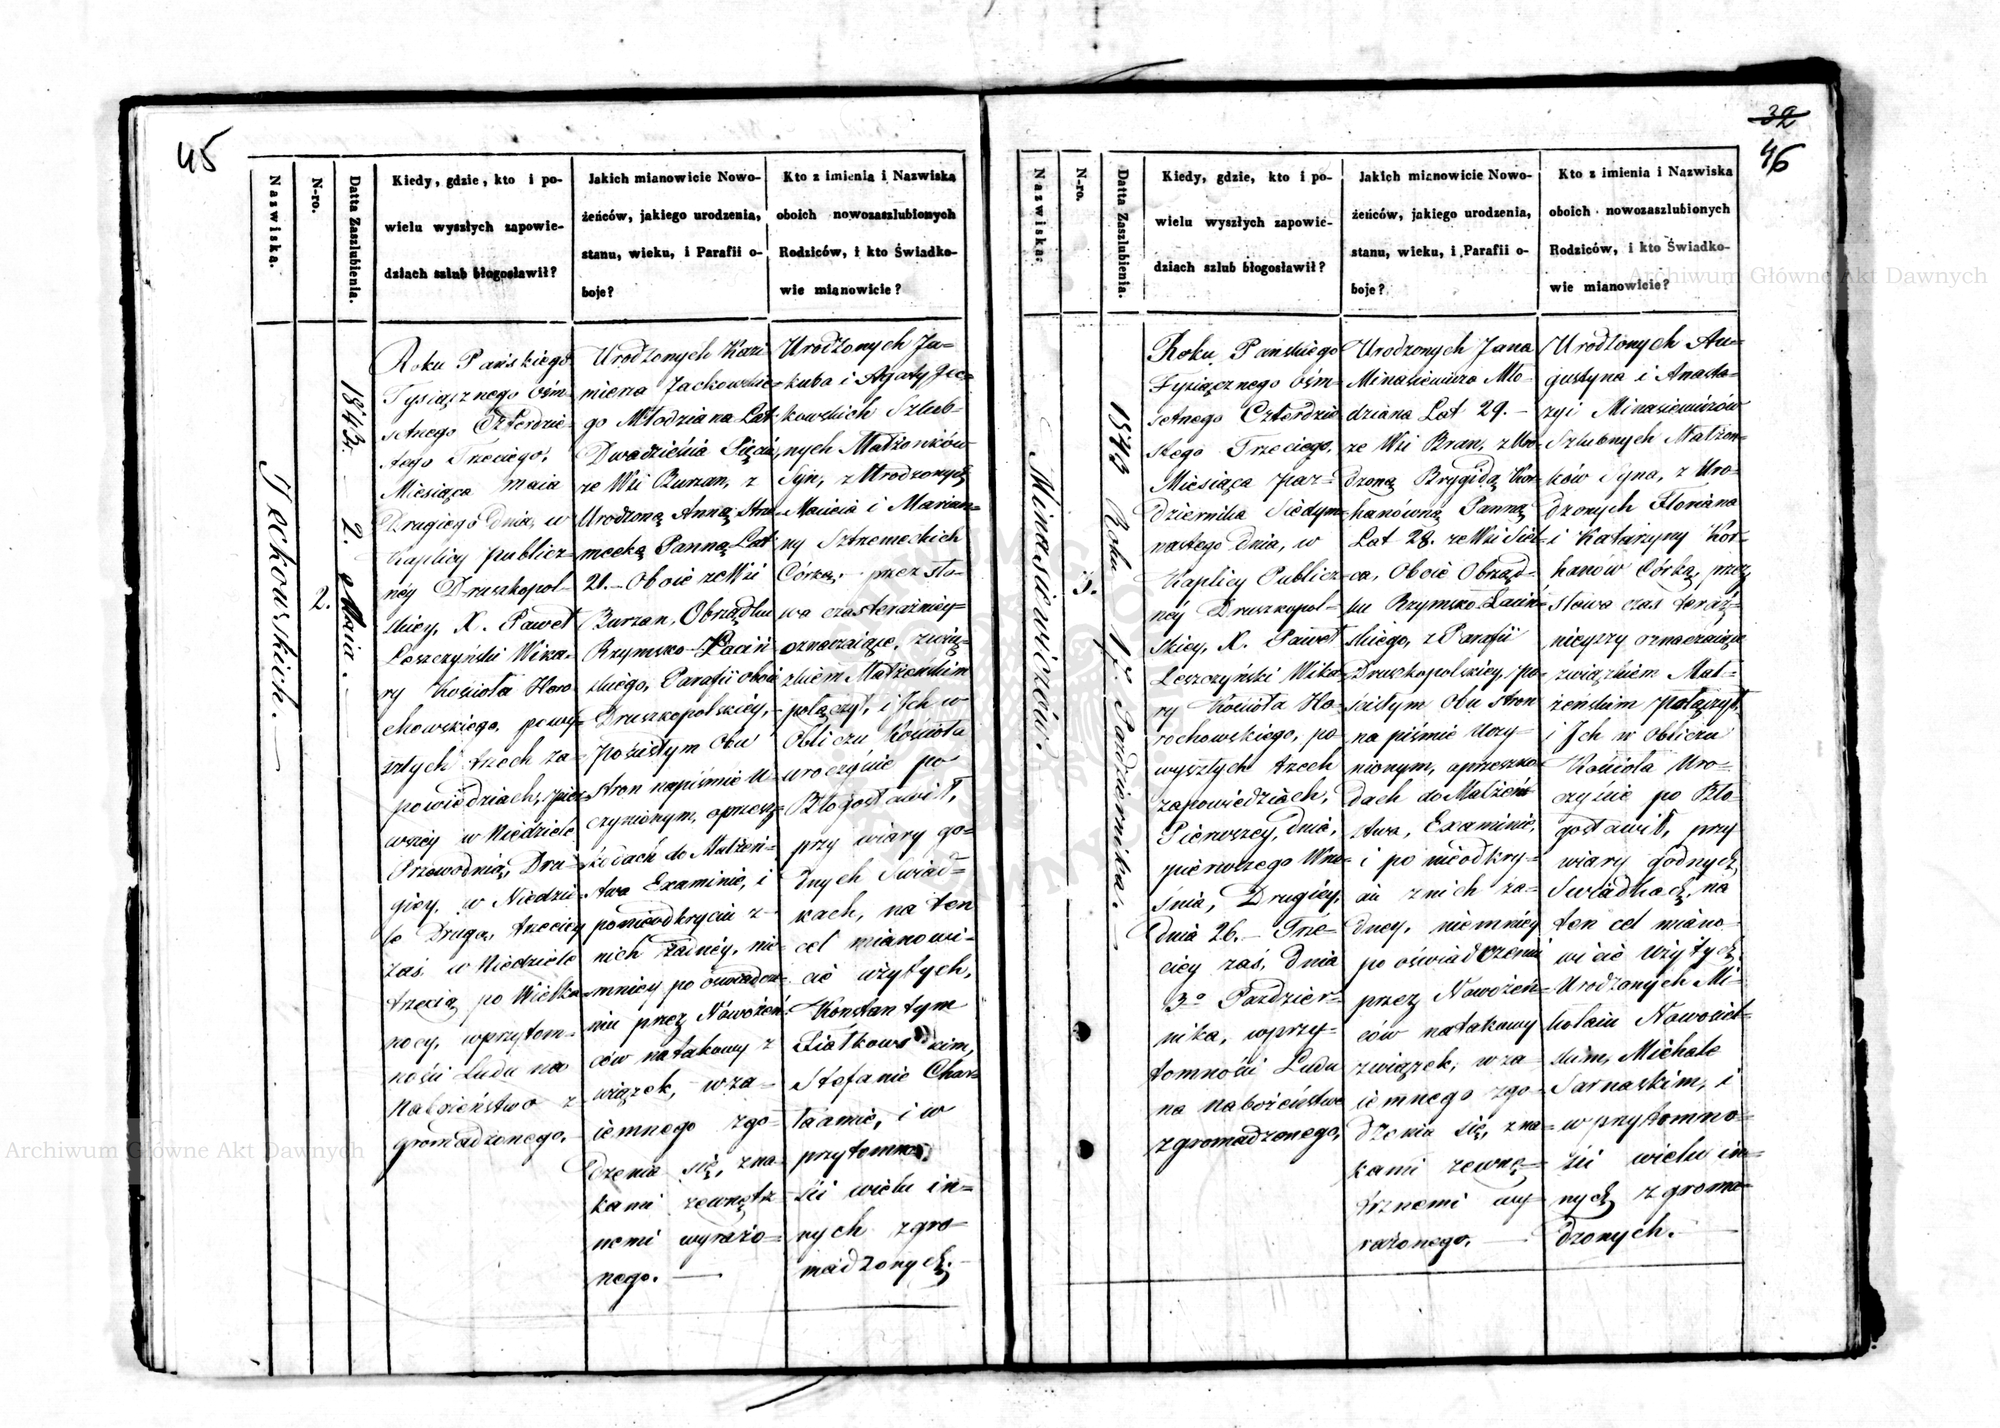 45
Nazwiska.
N-ro.
Datta Zaszlubienia.
Kiedy, gdzie, kto i po-
wielu wyszłych zapowie-
dziach szlub błogosławił?
Jakich mianowicie Nowo-
żeńców, jakiego urodzenia,
stanu, wieku, i Parafii o-
boje?
Kto z imienia i Nazwiska
oboich nowozaszlubionych
Rodziców, i kto Świadko-
wie mianowicie?
Jeckowskich.
2.
1843. 2. Maia.
Roku Pańskiego
Tysiącznego ośm-
setnego Czterdzie-
stego Trzeciego,
Miesiąca Maia
Drugiego dnia, w
Kaplicy publicz-
néy Druszkopol-
skiey, X. Paweł
Leszczyński Wika-
ry Kościoła Horo-
chowskiego, powy-
szłych trzech za-
powiedziach, pier-
wszey w Niedziele
Przewodnią, Dru-
giey, w Niedzie-
le Drugą, trzeciey
zaś w Niedziele
trzecią po Wielka-
nocy, wprzytom-
ności Ludu na
Nabożeństwo z-
gromadzonego,
Urodzonych Kazi-
mierza Jackowskie-
go Młodziana Lat
Dwadzieścia Pięciu,
ze Wsi Burzan, z
Urodzoną Anną Strze-
mecką Panną Lat
21. Oboie ze Wsi
Burzan, Obrządku
Rzymsko-Łaciń-
skiego, Parafii oboie
Druszkopolskiey,
po ścisłym Obu
stron na piśmie u-
czynionym, oprzesz-
kodach do Małżeń-
stwa Examinie, i
po nieodkryciu z-
nich żadnéy, nie-
mniey po oświadcze-
niu przez Nowożeń-
ców natakowy z-
wiązek, wza-
iemnego zgo-
dzenia się, zna-
kami zewnętrz-
nemi wyrażo-
nego.
Urodzonych Ja-
kuba i Agaty Jec-
kowskich Szlub-
nych Małżonków
Syn, z Urodzonych
Macieia i Marian-
ny Strzemeckich
Córką, przez sło-
wa czas teraźniey-
oznaczaiące, zwią-
zkiem Małżeńskim
połączył, i Ich w
Obliczu Kościoła
uroczyście po
Błogosławił,
przy wiary go-
dnych Świad-
kach, na ten
cel mianowi-
cie użytych,
Konstantym
Fiałkowskim,
Stefanie Char-
łaamie, i w
przytomno-
ści wielu in-
nych zgro-
madzonych.
32
46
Nazwiska.
N-ro.
Datta Zaszlubienia.
Kiedy, gdzie, kto i po-
wielu wyszłych zapowie-
dziach szlub błogosławił?
Jakich mianowicie Nowo-
żeńców, jakiego urodzenia,
stanu, wieku, i Parafii o-
boje?
Kto z imienia i Nazwiska
oboich nowozaszlubionych
Rodziców, i kto Świadko-
wie mianowicie?
Minasiewiczów.
3.
1843 Roku 17. Października.
Roku Pańskiego
Tysiącznego ośm-
setnego Czterdzie-
stego Trzeciego,
Miesiąca Paź-
dziernika Siedym-
nastego dnia, w
Kaplicy Publicz-
néy Druszkopol-
skiey, X. Paweł
Leszczyński Wika-
ry Kościoła Ho-
rochowskiego, po
wyszłych trzech
zapowiedziach,
Pierwszey, dnia,
pierwszego Wrze-
śnia, Drugiey,
dnia 26. Trze-
ciey zaś, dnia
3º Paździer-
nika, wprzy-
tomności Ludu
na nabożeństwo
zgromadzonego,
Urodzonych Jana
Minasiewicza Mło-
dziana Lat 29.
ze Wsi Bran, z Uro-
dzoną Brygidą Kor-
hanówną Panną
Lat 28. ze Wsi Siel-
ca, Oboie Obrząd-
ku Rzymsko Łaciń-
skiego, z Parafii
Druszkopolskiey, po
ścisłym Obu stron
na piśmie uczy-
nionym, oprzeszko-
dach do Małżeń-
stwa, Examinie,
i po nieodkry-
ciu z nich ża-
dney, niemniey
po oświadczeniu
przez Nowożeń-
ców natakowy
związek, wza-
iemnego zgo-
dzenia się, zna-
kami zewnę-
trznemi wy-
rażonego.
Urodzonych Au-
gustyna i Anasta-
zyi Minasiewiczów
Szlubnych Małżon-
ków Syna, z Uro-
dzonych Floriana
i Katarzyny Kor-
hanów Córką, przez
słowa czas teraź-
nieyszy oznaczaiące
związkiem Mał-
żeńskim połączył,
i Ich w Obliczu
Kościoła Uro-
czyście po Bło-
gosławił, przy
wiary godnych
Świadkach, na
ten cel miano-
wicie użytych
Urodzonych Mi-
kołaiu Nowosiel-
skim, Michale
Sarnaskim, i
w przytomno-
ści wielu in-
nych zgroma-
dzonych.
Archiwum Główne Akt Dawnych
Archiwum Główne Akt Dawnych